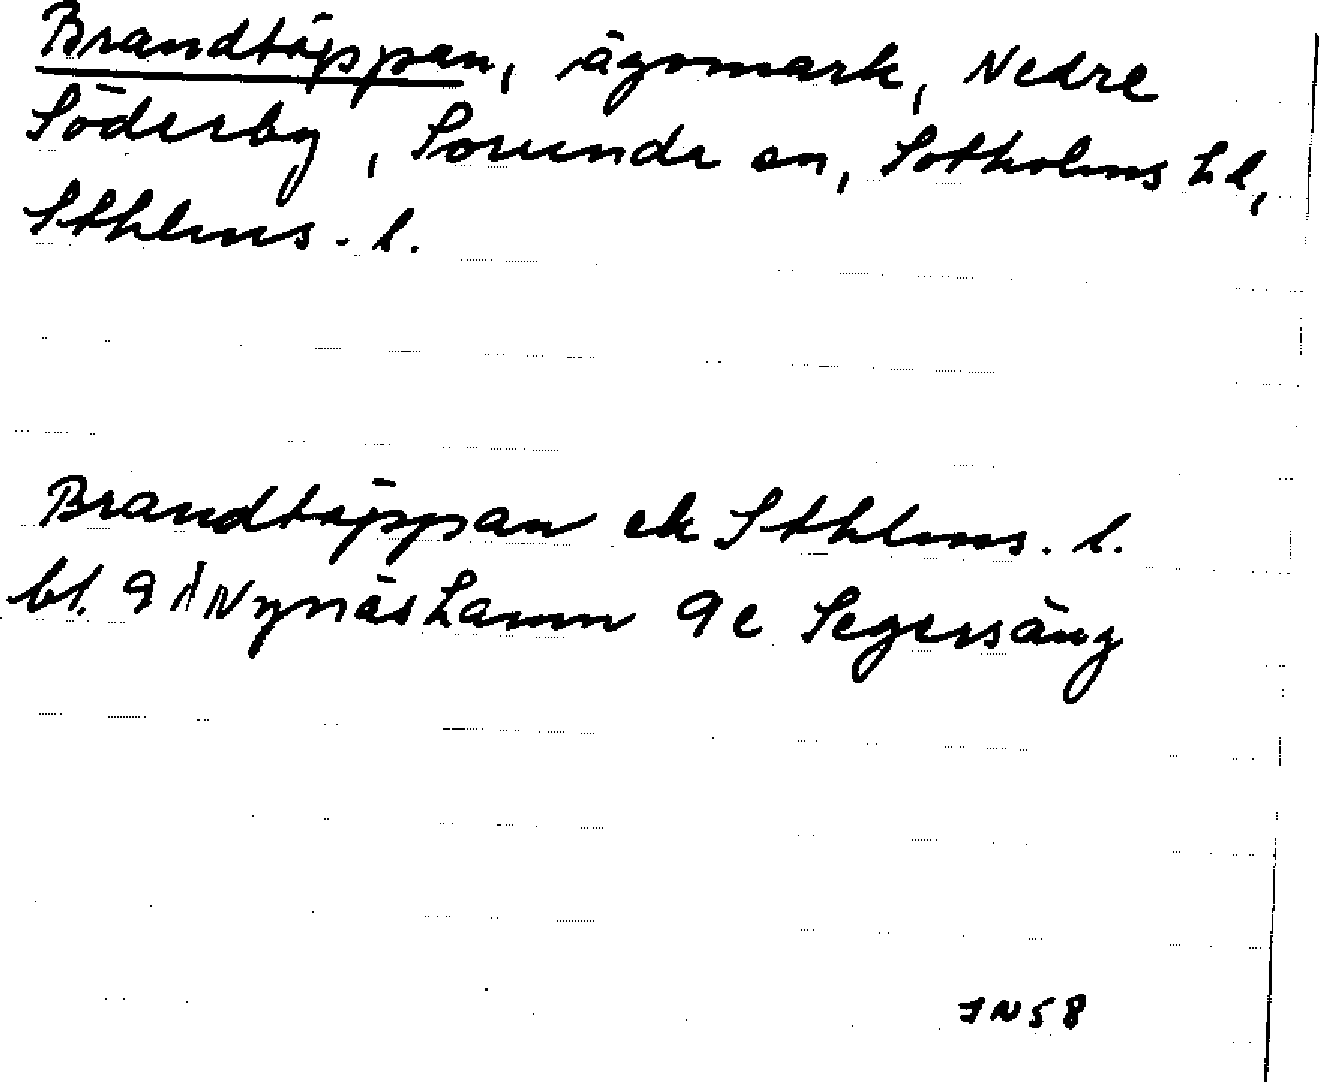 Brandtäppan, ägomark, Nedre
Söderby, Sorunda sn, Sotholms hd,
Sthlms. l.
Brandtäppan ek Sthlms. l.
bl. 9 Nynäshamn 9c Segersäng
JN58